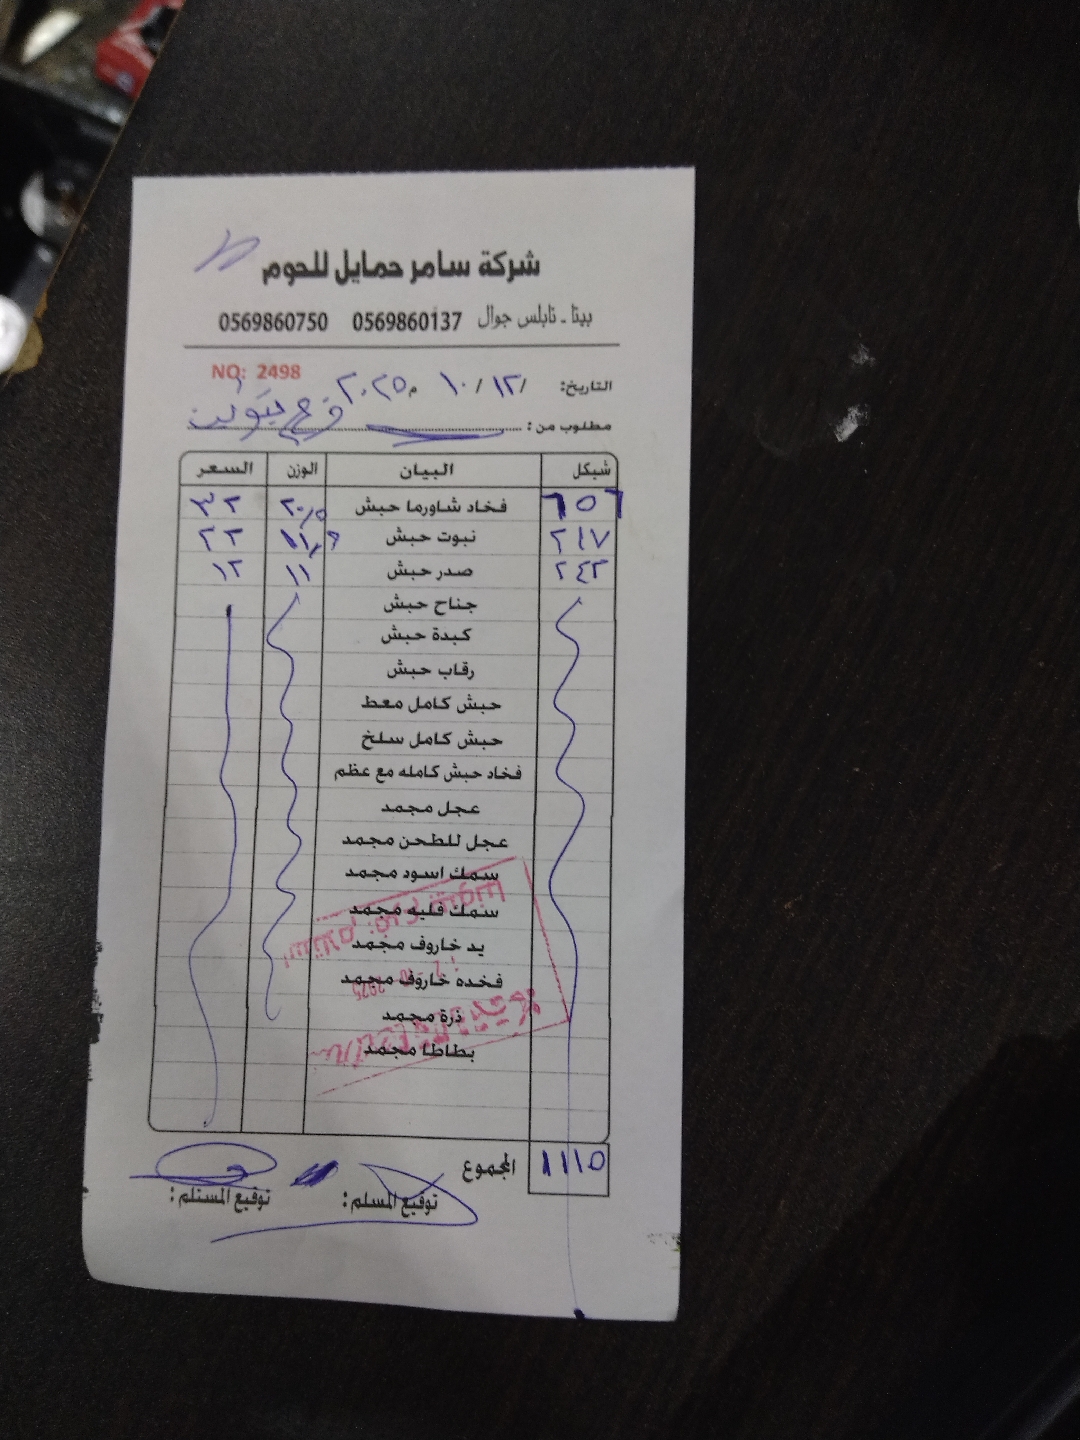 شركة سامر حمايل للحوم
بيتا - نابلس جوال 0569860137 0569860750
NO: 2498
التاريخ: / ١٢ / ١٠ ٢٠٢٥م
مطلوب من : فرع
شيكل البيان الوزن السعر
٦٥٦ فخاد شاورما حبش ٢٠,٥ ٣٢
٢٤٧ نبوت حبش
٢٤٢ صدر حبش ١١ ٢٢
جناح حبش
كبدة حبش
رقاب حبش
حبش كامل معط
حبش كامل سلخ
فخاد حبش كامله مع عظم
عجل مجمد
عجل للطحن مجمد
سمك اسود مجمد
سمك فليه مجمد
يد خاروف مجمد
فخده خاروف مجمد
ذرة مجمد
بطاطا مجمد
المجموع ١١١٥
توقيع المسلم : توقيع المستلم :